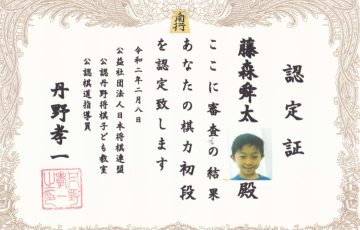 認定証
藤森舜太殿
ここに審査の結果
あなたの棋力初段
を認定致します
令和二年二月八日
公益社団法人日本将棋連盟
公認丹野将棋子ども教室
公認棋道指導員
丹野孝一